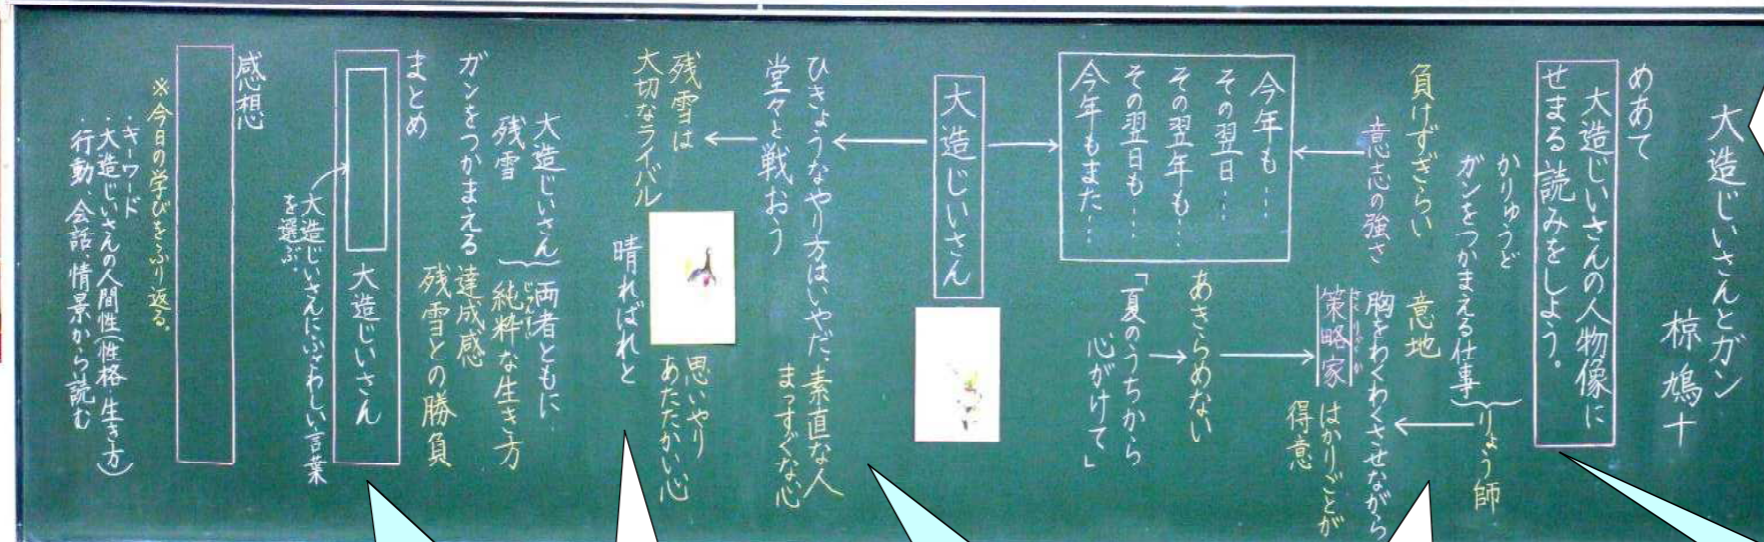 大造じいさんとガン
椋鳩十
めあて
大造じいさんの人物像に
せまる読みをしよう。
かりゅうど
ガンをつかまえる仕事
りょう師
負けずぎらい
意地
意志の強さ
胸をわくわくさせながら
策略家
はかりごとが
得意
今年も…
その翌日…
その翌年も…
その翌日も…
今年もまた…
あきらめない
「夏のうちから
心がけて」
大造じいさん
ひきょうなやり方はいやだ
堂々と戦おう
素直な人
まっすぐな心
残雪は
大切なライバル
思いやり
あたたかい心
晴ればれと
大造じいさん
残雪
両者ともに
純粋な生き方
じゅんすい
ガンをつかまえる
達成感
残雪との勝負
まとめ
大造じいさん
大造じいさんにふさわしい言葉
を選ぶ。
感想
※今日の学びをふり返る。
・キーワード
・大造じいさんの人間性(性格、生き方)
・行動、会話、情景から読む